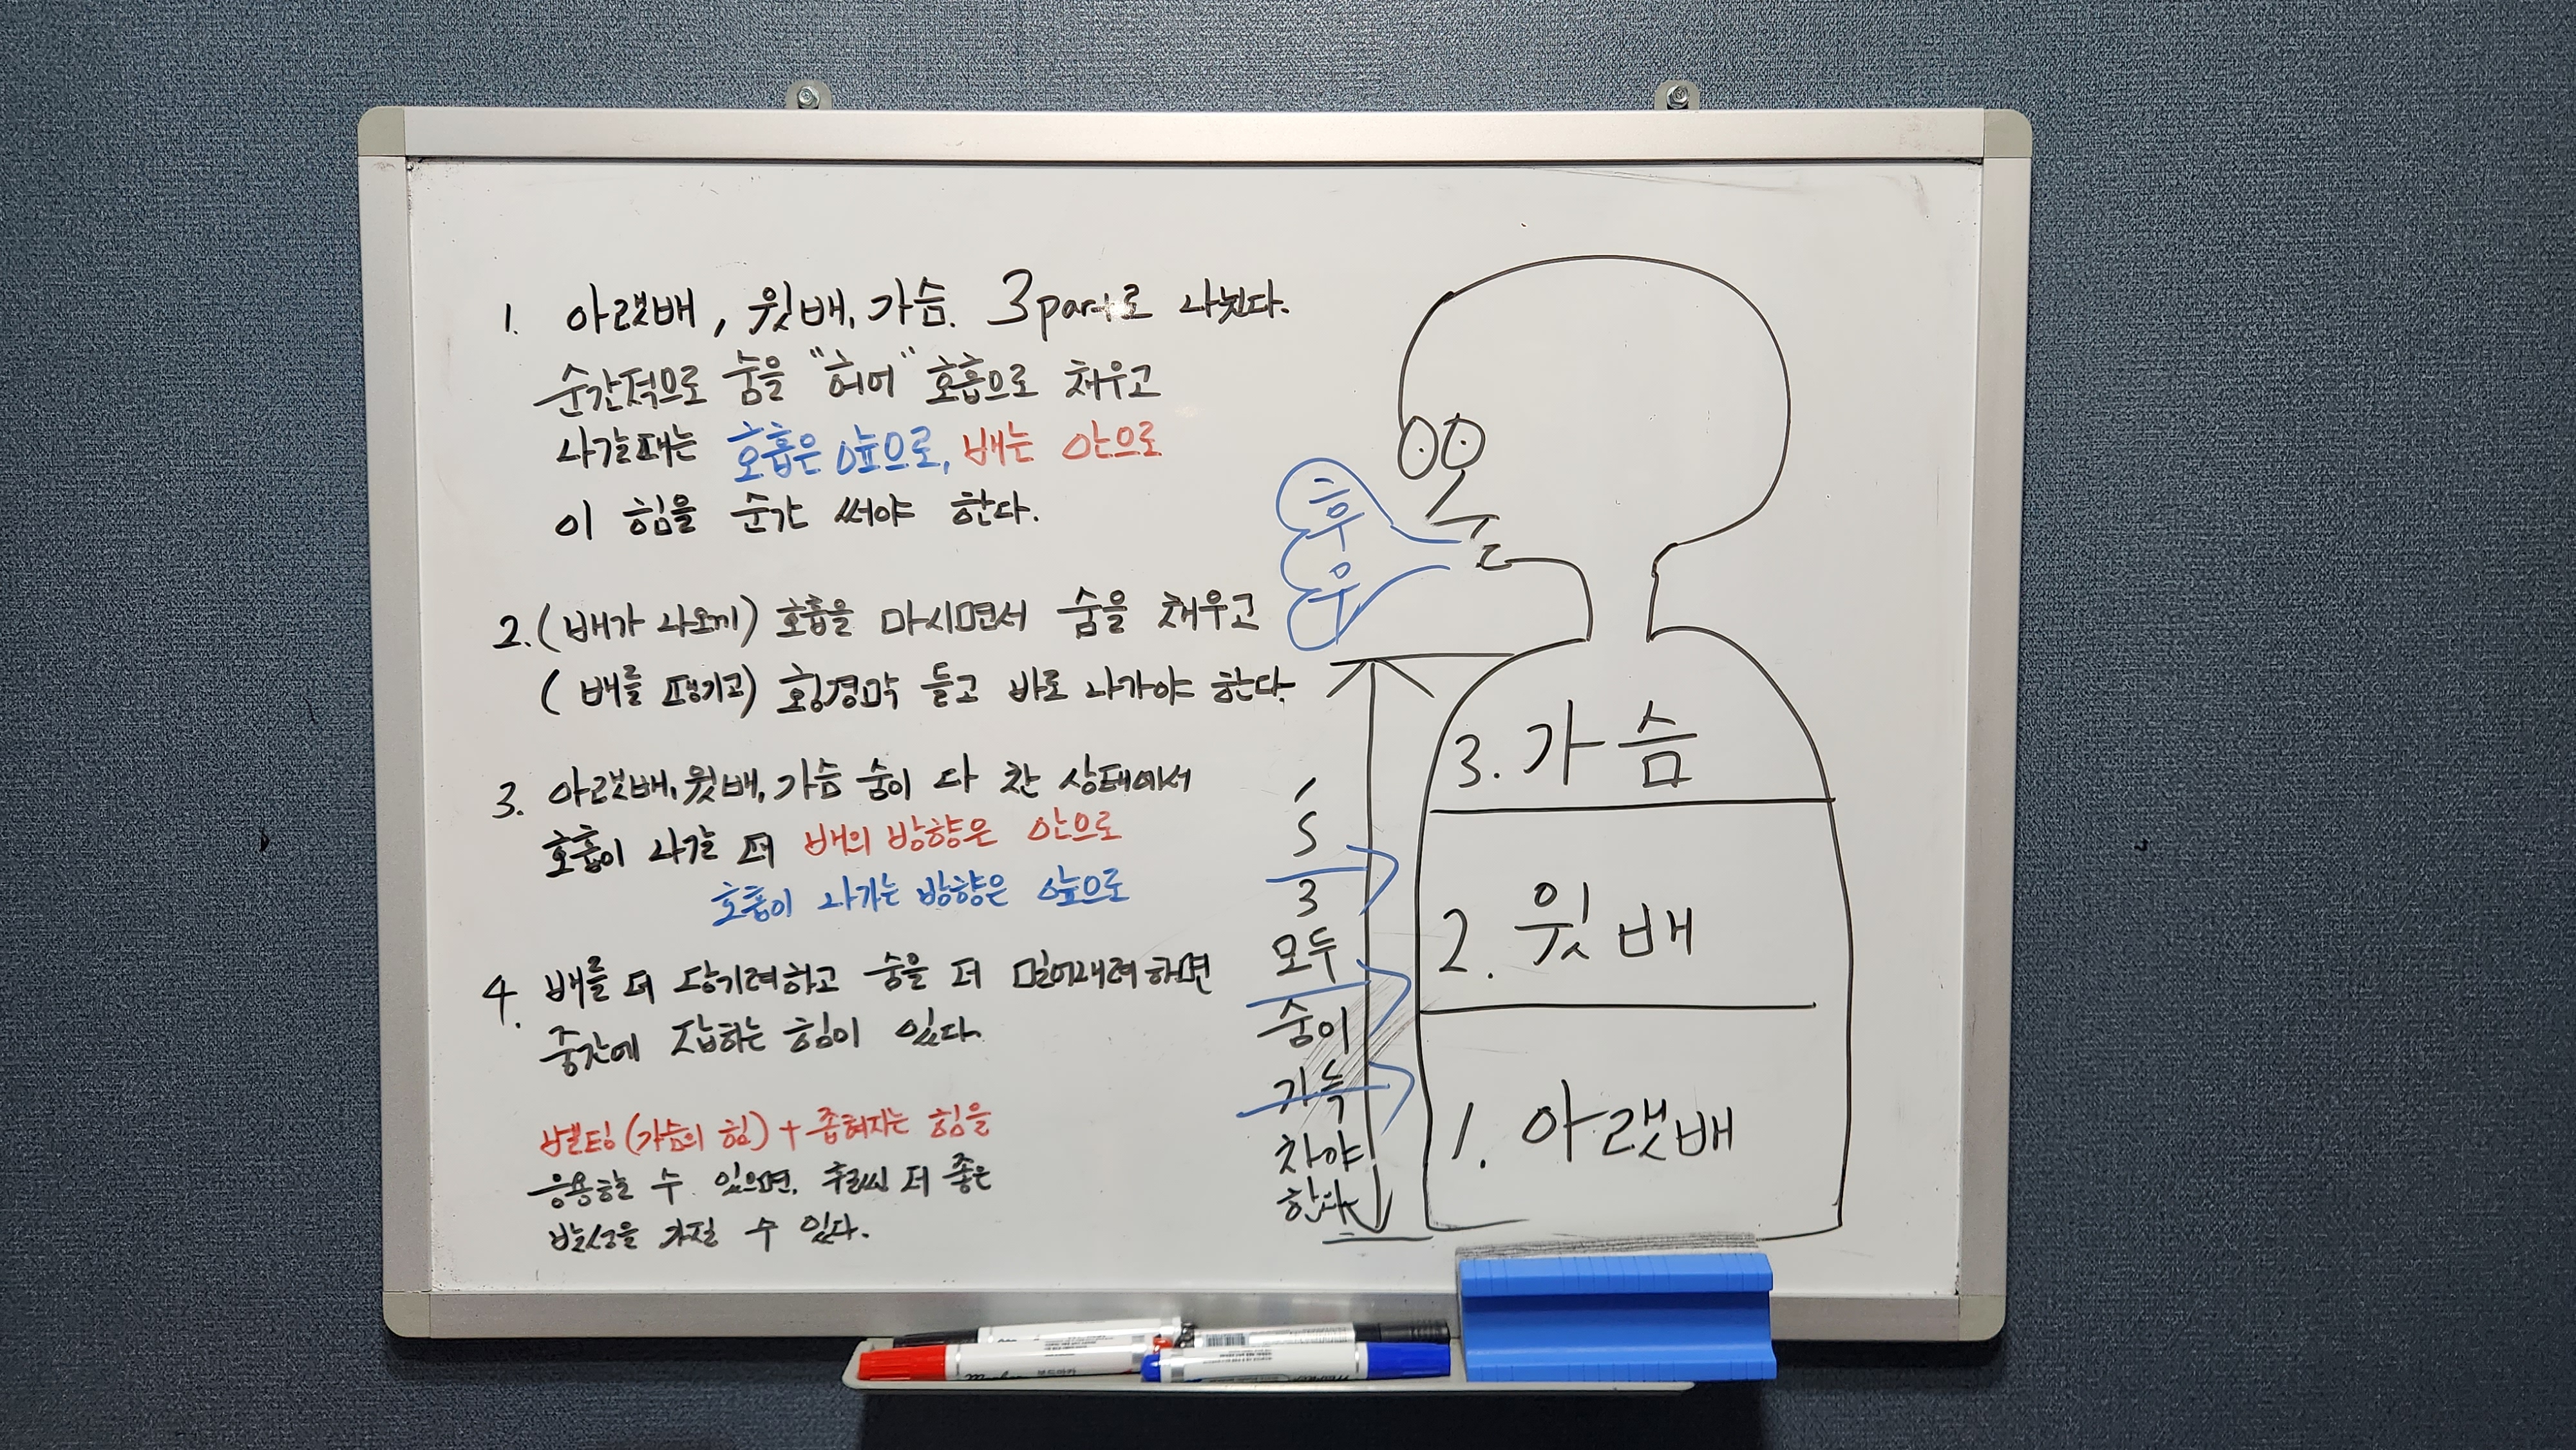 1. 아랫배, 윗배, 가슴. 3part로 나뉜다.
순간적으로 숨을 "허어" 호흡으로 채우고
나갈때는 호흡은 앞으로, 배는 안으로
이 힘을 순간 써야 한다.
2. (배가 나오끼) 호흡을 마시면서 숨을 채우고
(배를 땡기고) 횡경막 들고 바로 나가야 한다.
3. 아랫배, 윗배, 가슴 숨이 다 찬 상태에서
호흡이 나갈 때 배의 방향은 안으로
호흡이 나가는 방향은 앞으로
4. 배를 더 당기려하고 숨을 더 밀어내려하면
중간에 조합하는 힘이 있다.
벨팅 (가슴의 힘) + 좁혀지는 힘을
응용할 수 있으면, 훨씬 더 좋은
발성을 가질 수 있다.
후
우
1
S
3
모두
숨이
가득
차야
한다
3. 가슴
2. 윗배
1. 아랫배